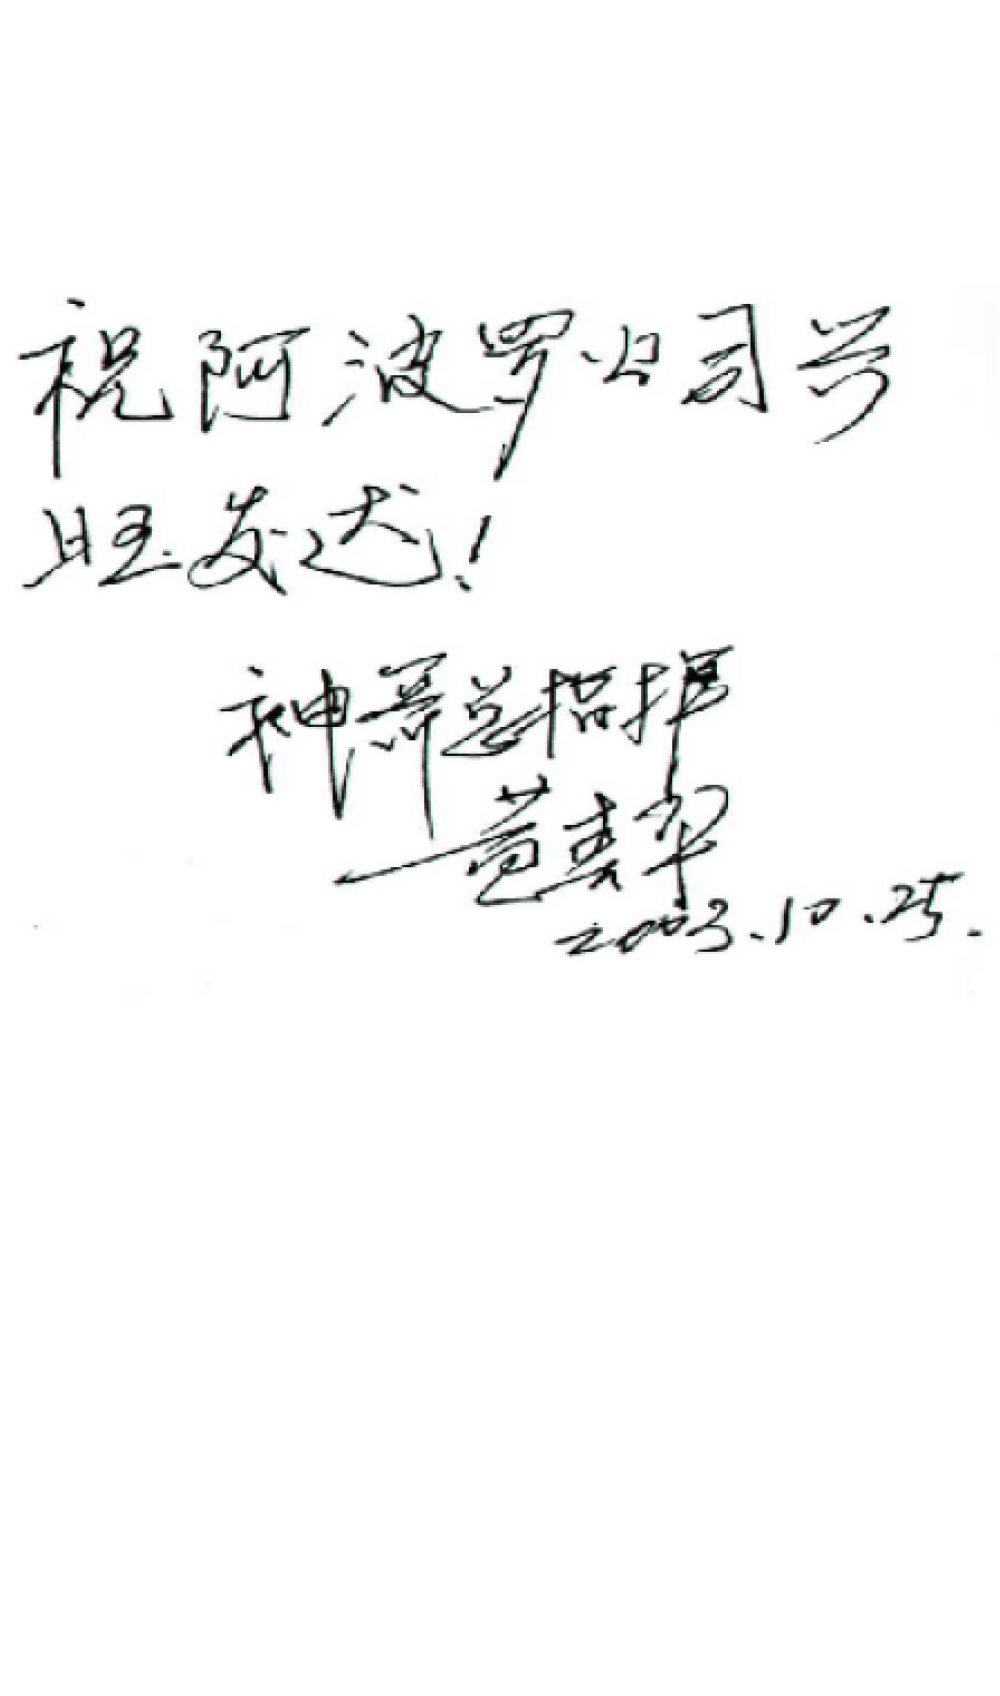 祝阿波罗公司兴
旺发达!
神箭总指挥
黄春平
2003.10.25.